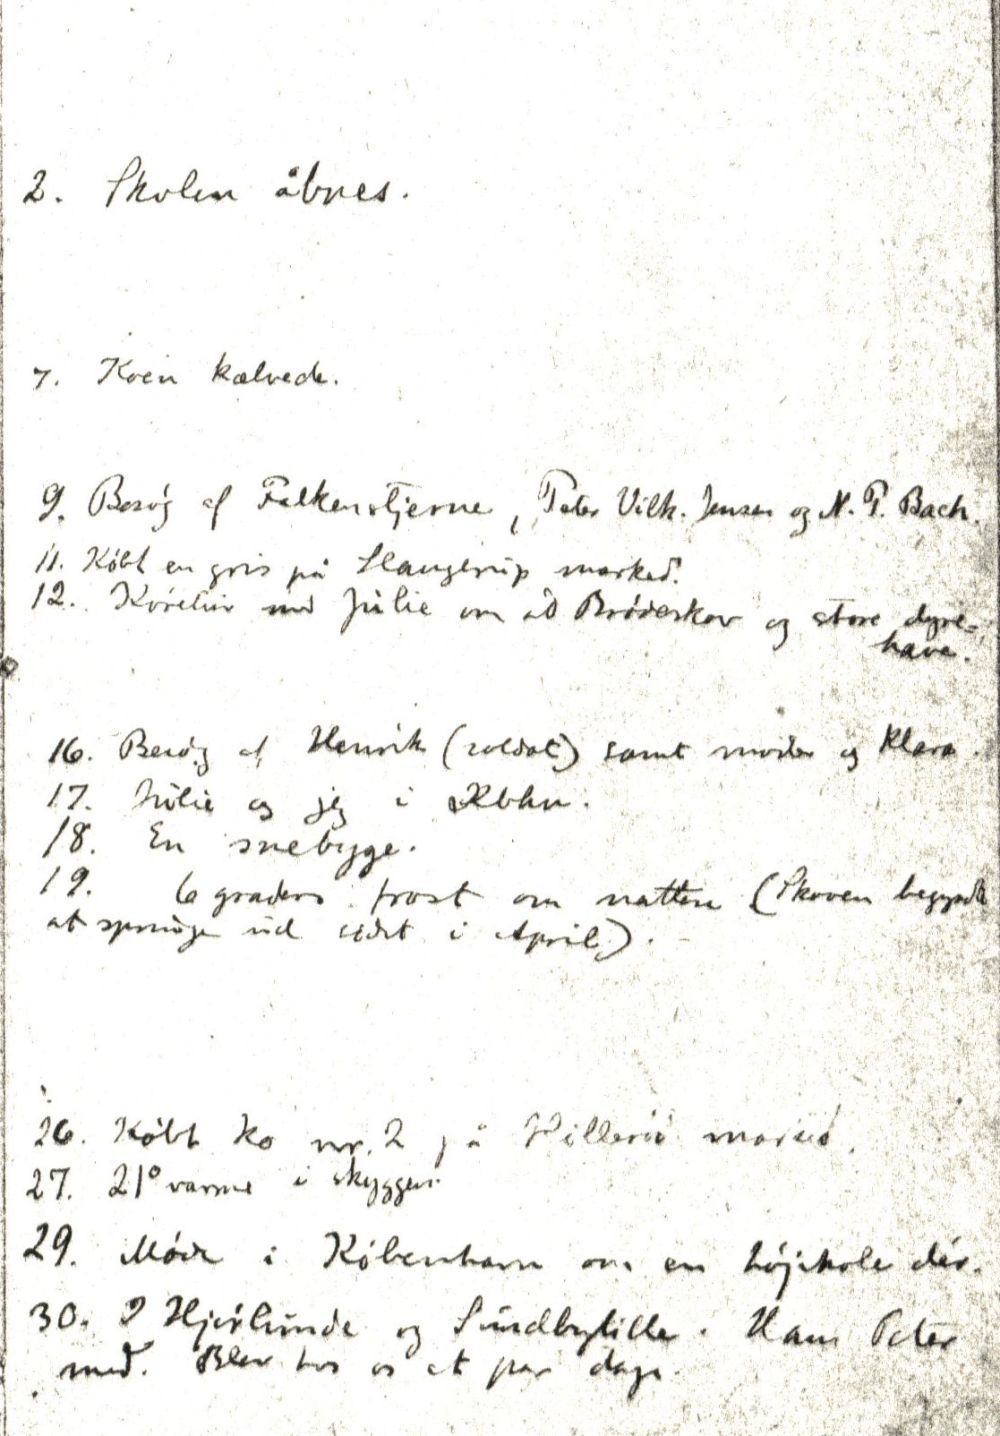 2. Skolen åbnes.
7. Koen kælvede.
9. Besøg af Falkenstjerne, Peter Vilh. Jensen og N. P. Bach.
11. Købt en gris på Slangerup marked.
12. Køretur med Julie om ad Brødeskov og store dyre-
have.
16. Besøg af Henrik (soldat) samt moder og Klara.
17. Julie og jeg i Kbhn.
18. En snebyge.
19. 6 graders frost om natten (Skoven begyndte
at springe ud sidst i April).
26. Købt ko nr. 2 på Hillerød marked.
27. 21° varme i skyggen.
29. Møde i København om en højskole dér.
30. I Hjørlunde og Sundbylille. Hans Peter
med. Blev hos os et par dage.